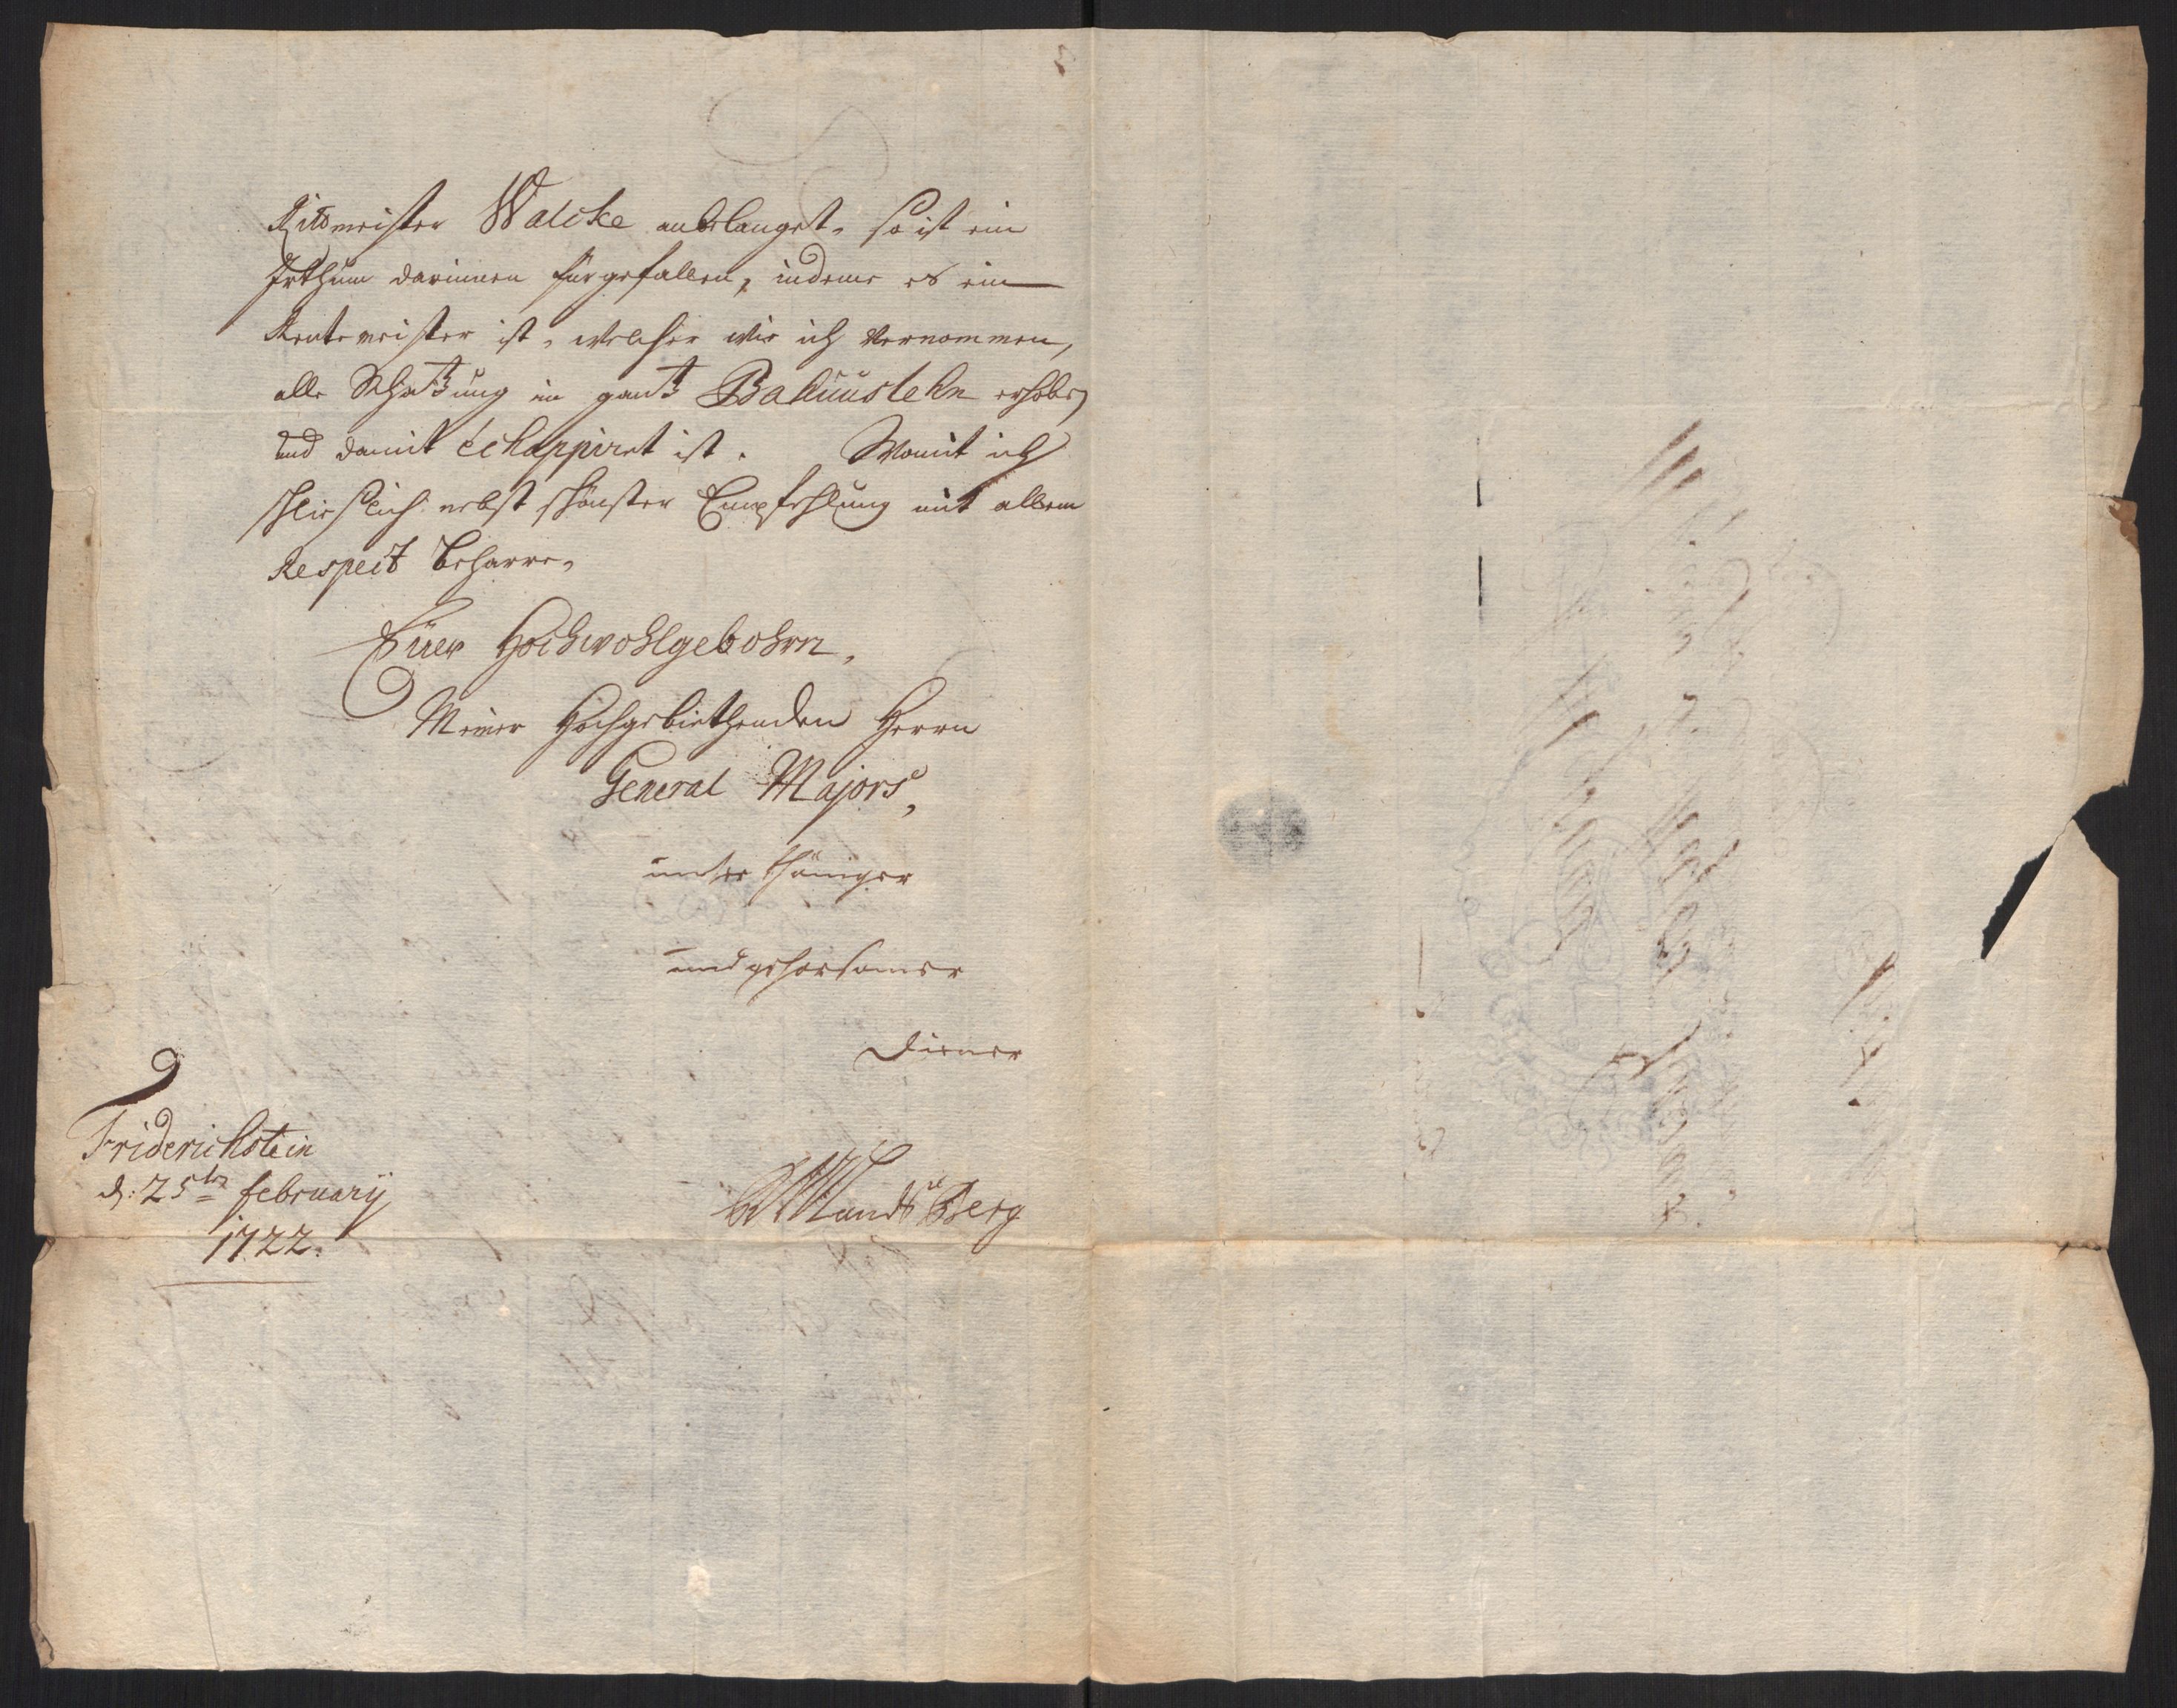 Rittmeister Walcke anbelanget, so ist ein
Irthum darinnen fürgefallen, indeme es ein
Rentemeister ist, welcher wie ich vernommen,
alle Schatzung in gantz erhoben
und damit echappiret ist. Womit ich
schließlich nebst schönster Empfehlung mit allem
Respect beharre,
Eüer Hochwohlgebohrn,
Meines Hochgebiethenden Herrn
General Majors,
unterthäniger
und gehorsamer
Diener
Friderichstein
d: 25ten february
1722.